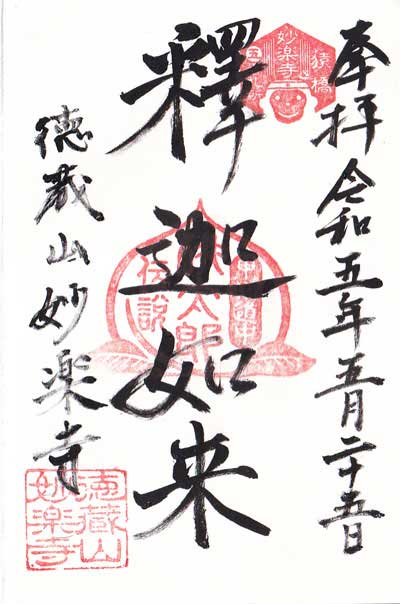 奉拝 令和五年五月二十五日
猿橋
妙楽寺
釋迦如来
桃太郎
伝説
徳蔵山妙楽寺
徳蔵山
妙楽寺